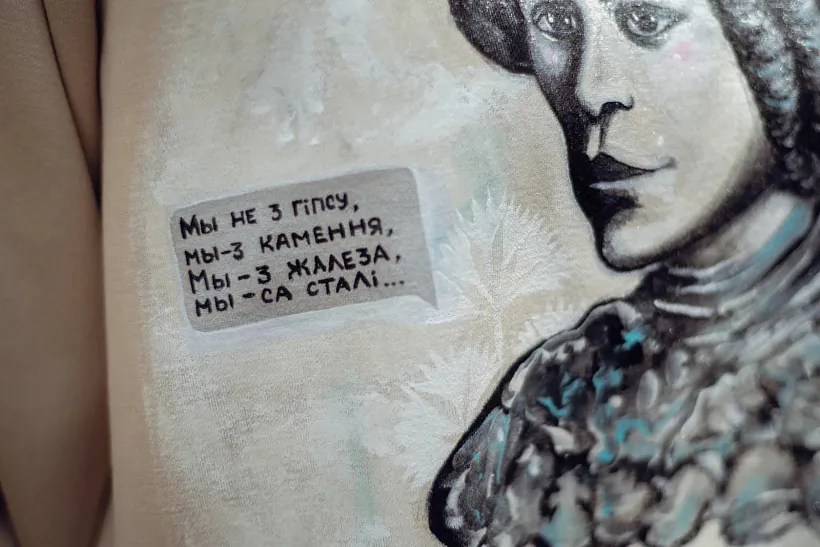 Мы не з гіпсу,
мы-з камення,
Мы-з жалеза,
мы-са сталі...